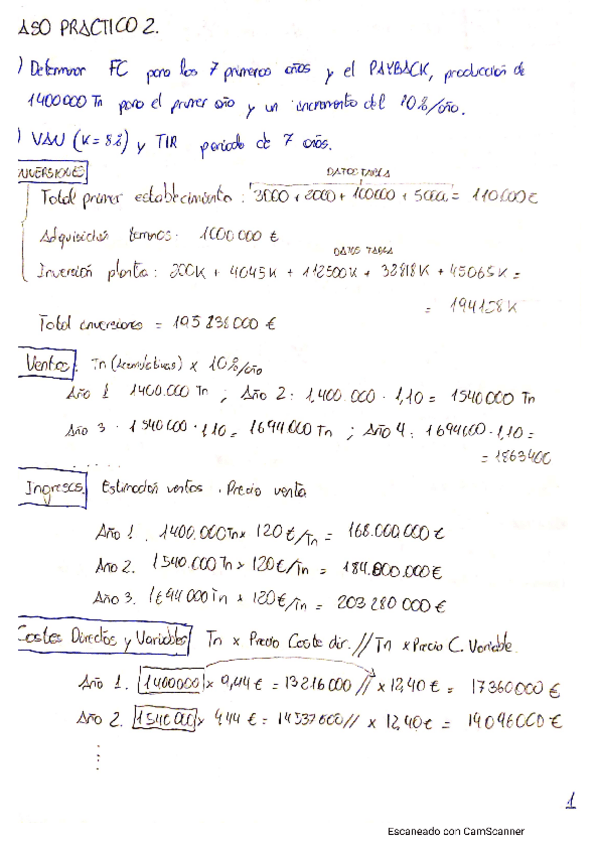 ASO PRACTICO 2.
) Determinar FC para los 7 primeros años y el PAYBACK, producción de
1400000 Tn para el primer año y un incremento del 10%/año.
) VAN (K=8%) y TIR periodo de 7 años.
NVERSIONES
DATOS TABLA
Total primer establecimiento : 3000 + 2000 + 100000 + 5000 = 110000€
Adquisición terrenos · 1000000 €
DATOS TABLA
Inversión planta : 200K + 4045K + 112500K + 32818K + 45065K =
= 194128K
Total inversiones = 195238000 €
Ventas. Tn (acumulativas) x 10%/año
Año 1 1400.000 Tn ; Año 2 : 1,400.000 · 1,10 = 1540000 Tn
Año 3 · 1540000 · 1,10 = 1694000 Tn ; Año 4 : 1694000 · 1,10 =
= 1863400
......
Ingresos. Estimación ventas · Precio venta
Año 1 . 1400.000Tn x 120€/Tn = 168.000.000€
Año 2. 1540.000Tn x 120€/Tn = 184.800.000€
Año 3. 1694000Tn x 120€/Tn = 203280000€
Costes Directos y Variables Tn x Precio Coste dir. // Tn x Precio C. Variable.
Año 1. 1400000 x 9,44€ = 13216000 // x 12,40€ = 17360000€
Año 2. 1540000 x 9,44€ = 14537600 // x 12,40€ = 19096000€
1
Escaneado con CamScanner